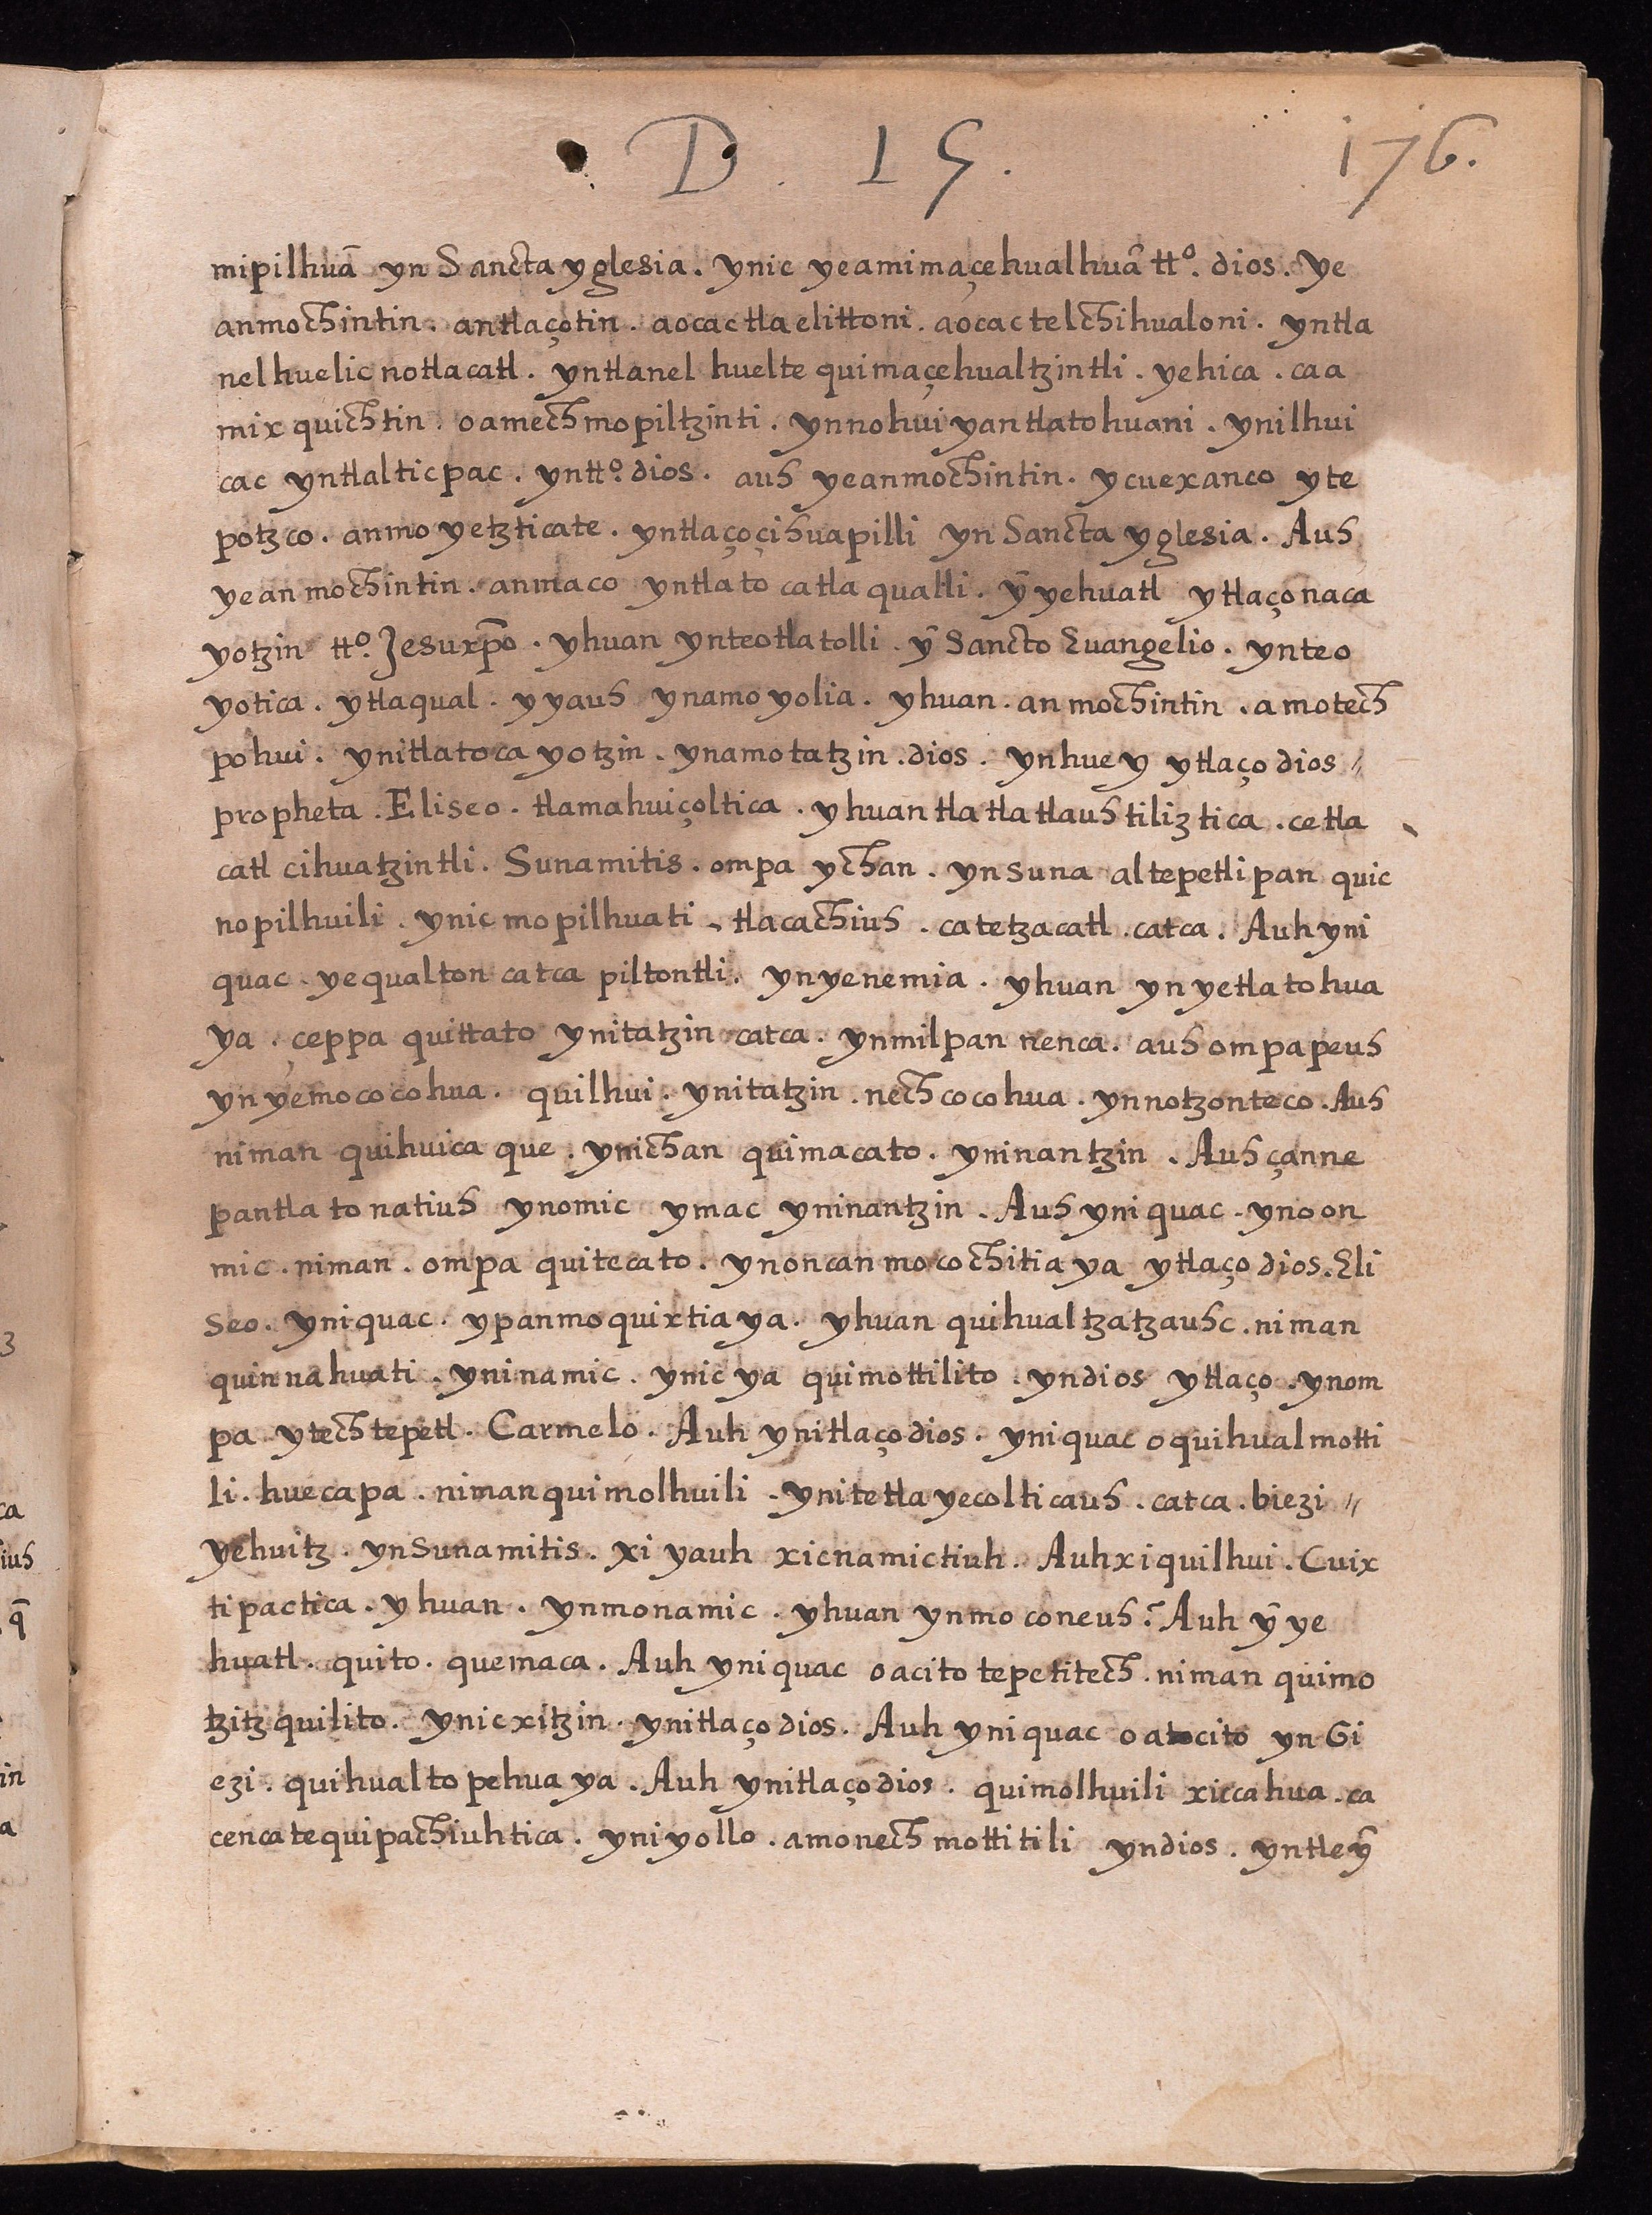 D. 15.
176.
mipilhuā yn Sancta yglesia. ynic yeamimaçehualhuā tt⁰. dios. ye
anmochintin. antlaçotin. aocac tlaelittoni. aocac telchihualoni. yntla
nelhuelic notlacatl. yntlanel huelte quimaçehualtzintli. yehica. caa
mixquichtin. oamechmopiltzinti. ynnohuiyantlatohuani. ynilhui
cac yntlalticpac. yntt⁰. dios. auh yeanmochintin. ycuexanco yte
potzco. anmoyetzticate. yntlaçoçihuapilli yn Sancta yglesia. Auh
yeanmochintin. anmaco yntlatocatlaqualli. ȳyehuatl ytlaçonaca
yotzin tt⁰. Jesuxp̄o. yhuan ynteotlatolli. ȳ Sancto Euangelio. ynteo
yotica. ytlaqual. yyauh ynamoyolia. yhuan. anmochintin. amotech
pohui. ynitlatocayotzin. ynamotatzin. dios. ynhuey ytlaçodios〃
propheta. Eliseo. tlamahuiçoltica. yhuan tlatlatlauhtiliztica. cetla
catl cihuatzintli. Sunamitis. ompa ychan. ynsuna altepetlipan quic
nopilhuili. ynic mopilhuati, tlacachiuh. catetzacatl. catca. Auh yni
quac. yequalton catca piltontli. ynyenemia. yhuan ynyetlatohua
ya. çeppa quittato ynitatzin catca. ynmilpan nenca. auh ompapeuh
ynyemococohua. quilhui. ynitatzin. nechcocohua. ynnotzonteco. Auh
niman quihuicaque. ynichan quimacato. yninantzin. Auh çanne
pantla tonatiuh ynomic ymac yninantzin. Auh yniquac. ynoon
mic. niman. ompa quitecato. ynoncan mocochitiaya ytlaço dios. Eli
seo. yniquac. ypanmoquixtiaya. yhuan quihualtzatzauhc. niman
quinnahuati. yninamic. ynic ya quimottilito. yndios ytlaço. ynom
pa ytech tepetl. Carmelo. Auh ynitlaçodios. yniquac oquihualmotti
li. huecapa. nimanquimolhuili. ynitetlayecolticauh. catca. biezi〃
yehuitz. ynsunamitis. xiyauh xicnamictiuh. Auhxiquilhui. Cuix
tipactica. yhuan. ynmonamic. yhuan ynmoconeuh? Auh ȳ ye
huatl. quito. quemaca. Auh yniquac oacito tepetitech. niman quimo
tzitzquilito. ynicxitzin. ynitlaçodios. Auh yniquac oatocito yn Gi
ezi. quihualtopehuaya. Auh ynitlaçodios. quimolhuili xiccahua. ca
cencatequipachiuhtica. yniyollo. amonechmottitili yndios. yntleȳ